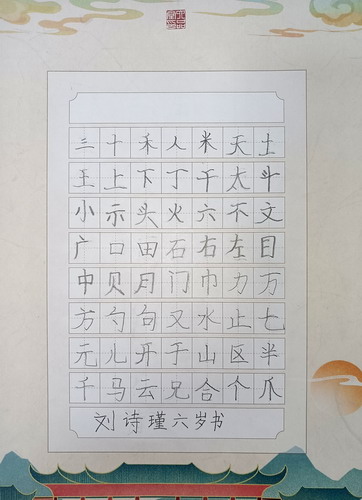 三十禾人米天土
王上下丁干太斗
小示头火六不文
广口田石右左目
中贝月门巾力万
方勺句又水止七
元儿开于山区半
千马云兄合个爪
刘诗瑾六岁书